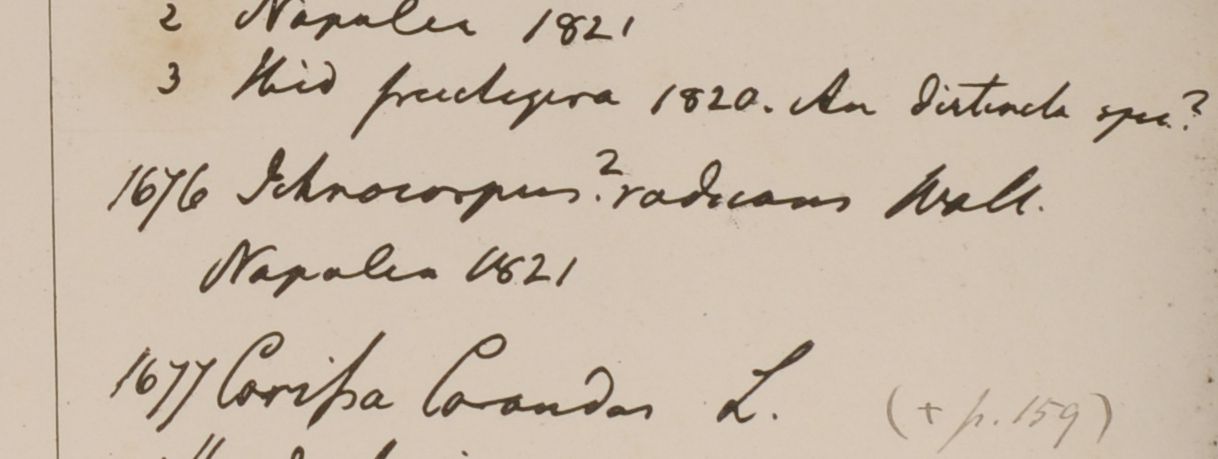 2 Napalia 1821
3 Ibid fructigera 1820. An distincta spec.?
1676 Ichnocarpus? radicans Wall.
Napalia 1821
1677 Carissa Carandas L. (+ p. 159)